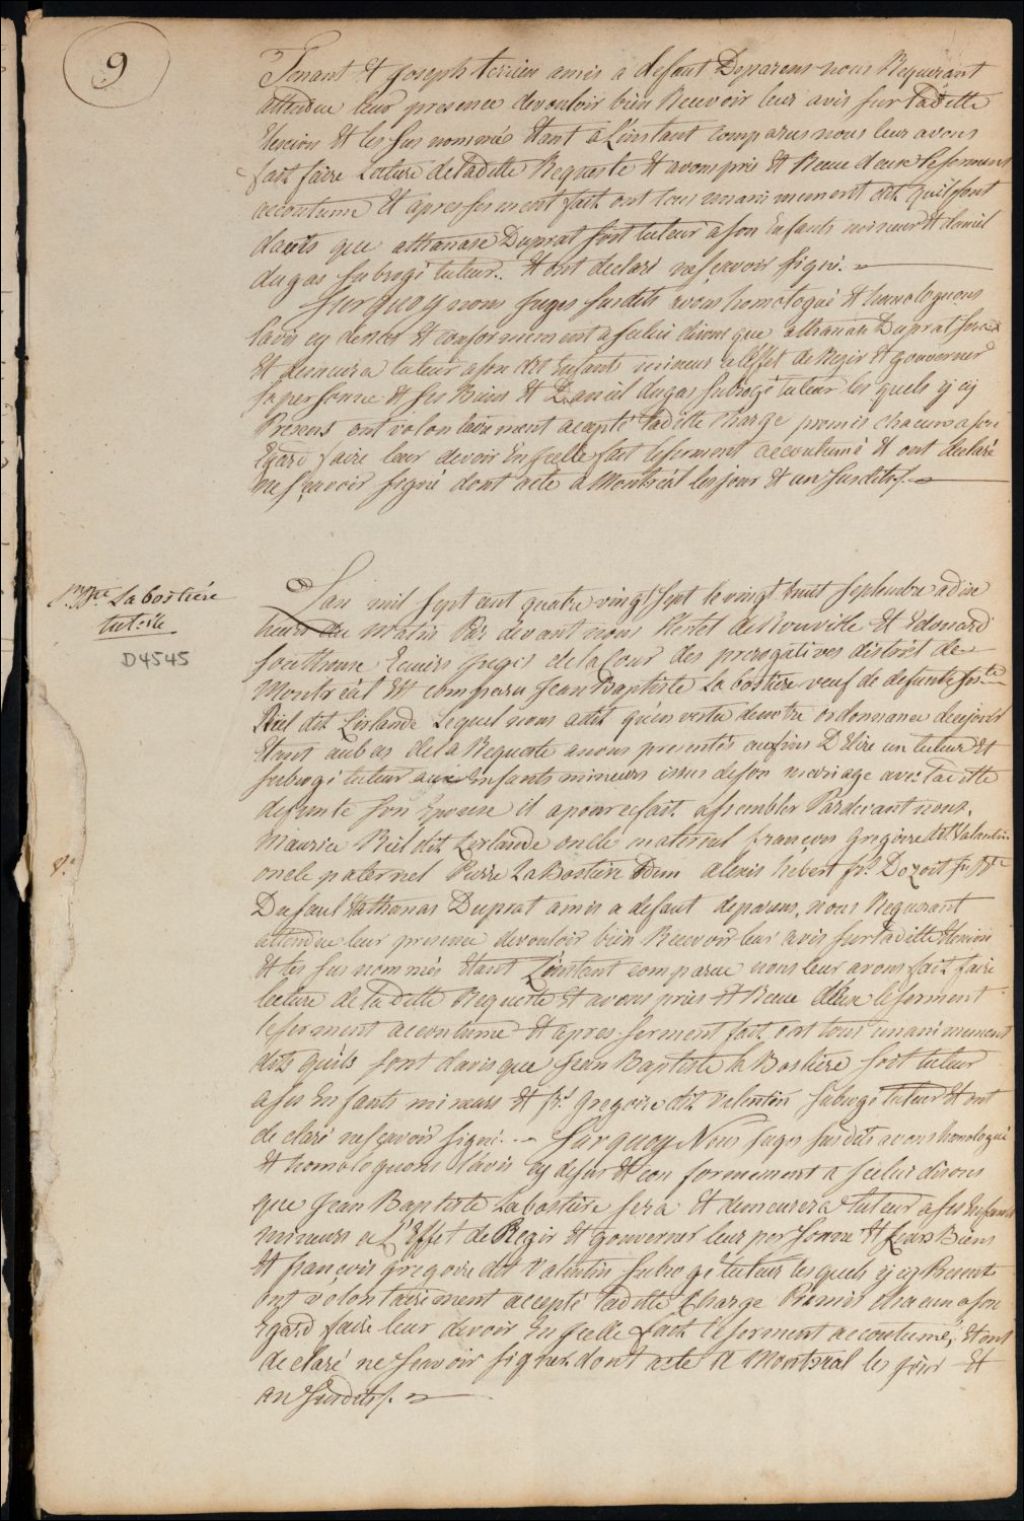 9
Tenant et Joseph terrien amis a defaut Deparens nous Requerant
attendu leur presence devouloir bien Recevoir leur avis sur Laditte
Elexion et les sus nommés Etant a L'instant comparus nous leur avons
fait faire Lecture deladitte Requeste et avons pris et Receu deux leserment
accoutumé et apres serment fait ont tous unanimement dit quilssont
davis que athanase Duprat soit tuteur ason Enfants mineur et daniel
dugas subrogé tuteur. et ont declaré nesçavoir signé.
Surquoy nous Juges susdits avons homologué et homologuons
Lavis cy dessus et conformement a Seelui disons que athanase Duprat sera
et demeurera tuteur ason dit Enfants mineur a l'Effet de Regir et gouverner
sa personne et ses Biens et Daniel dugas subrogé tuteur les quels y cy
Presens ont volontairement acepté Laditte Charge promis chacuns ason
Egard faire leur devoir En Jcelle fait leserment accoutumé et ont declaré
ne sçavoir signé dont acte a Montréal lesjour et an Susdits/.
Jn. Bte. Labostiére
tutelle
D4545
Lan mil sept cent quatre vingt sept le vingt huit septembre a dixe
heures du Matin Par devant nous Hertel deRouville et Edouard
Southouse Ecuiers juges dela Cour des prerogatives district de
Montréal est comparu Jean Baptiste La bostiere veuf de defunte Jos.te
Riel dit Lirlande Lequel nous adit qu'en vertu denotre ordonnance decejourd
Etant aubas dela Requeste anous presentés auxfins D'Elire un tuteur et
subrogé tuteur aux Enfants mineurs issus deson mariage avec Laditte
defunte son Epouse il apour cefait assembler Pardevant nous.
Maurice Riel dit Lerlande oncle maternel françois Gregoire dit Valentin
oncle paternel Pierre LaBostiere Edm alexis hebert fr.s Dozois Jn Bte
Dufaul Athanas Duprat amis a defaut deparens, nous Requerant
attendu leur presence devouloir bien Recevoir leur avis sur laditte Elexion
et les sus nommés Etant L'instant comparue nous leur avons fait faire
lecture de laditte Requeste et avons pris et Receu deux leserment
leserment accoutumé et apres serment fait ont tous unanimement
dits quils sont davis que Jean Baptiste la Bostiere soit tuteur
ases Enfants mineurs et fr.s Gregoire dit Valentin subrogé tuteur et ont
declaré nesçavoir signé... Surquoy Nous Juges susdits avons homologué
et homologuons Lavis cy dessus et conformement a Jcelui disons
que Jean Baptiste Labostiere sera et demeurera tuteur ases Enfants
mineurs a L'Effet de Regir et gouverner leur personne et Leurs Biens
et françois gregoire dit Valentin subrogé tuteur lesquels y cy Present
ont volontairement accepté laditte Charge Promis chacun ason
Egard faire leur devoir En Jcelle fait leserment accoutumé, et ont
declaré ne scavoir signer dont acte a Montréal les jour et
an susdits/.